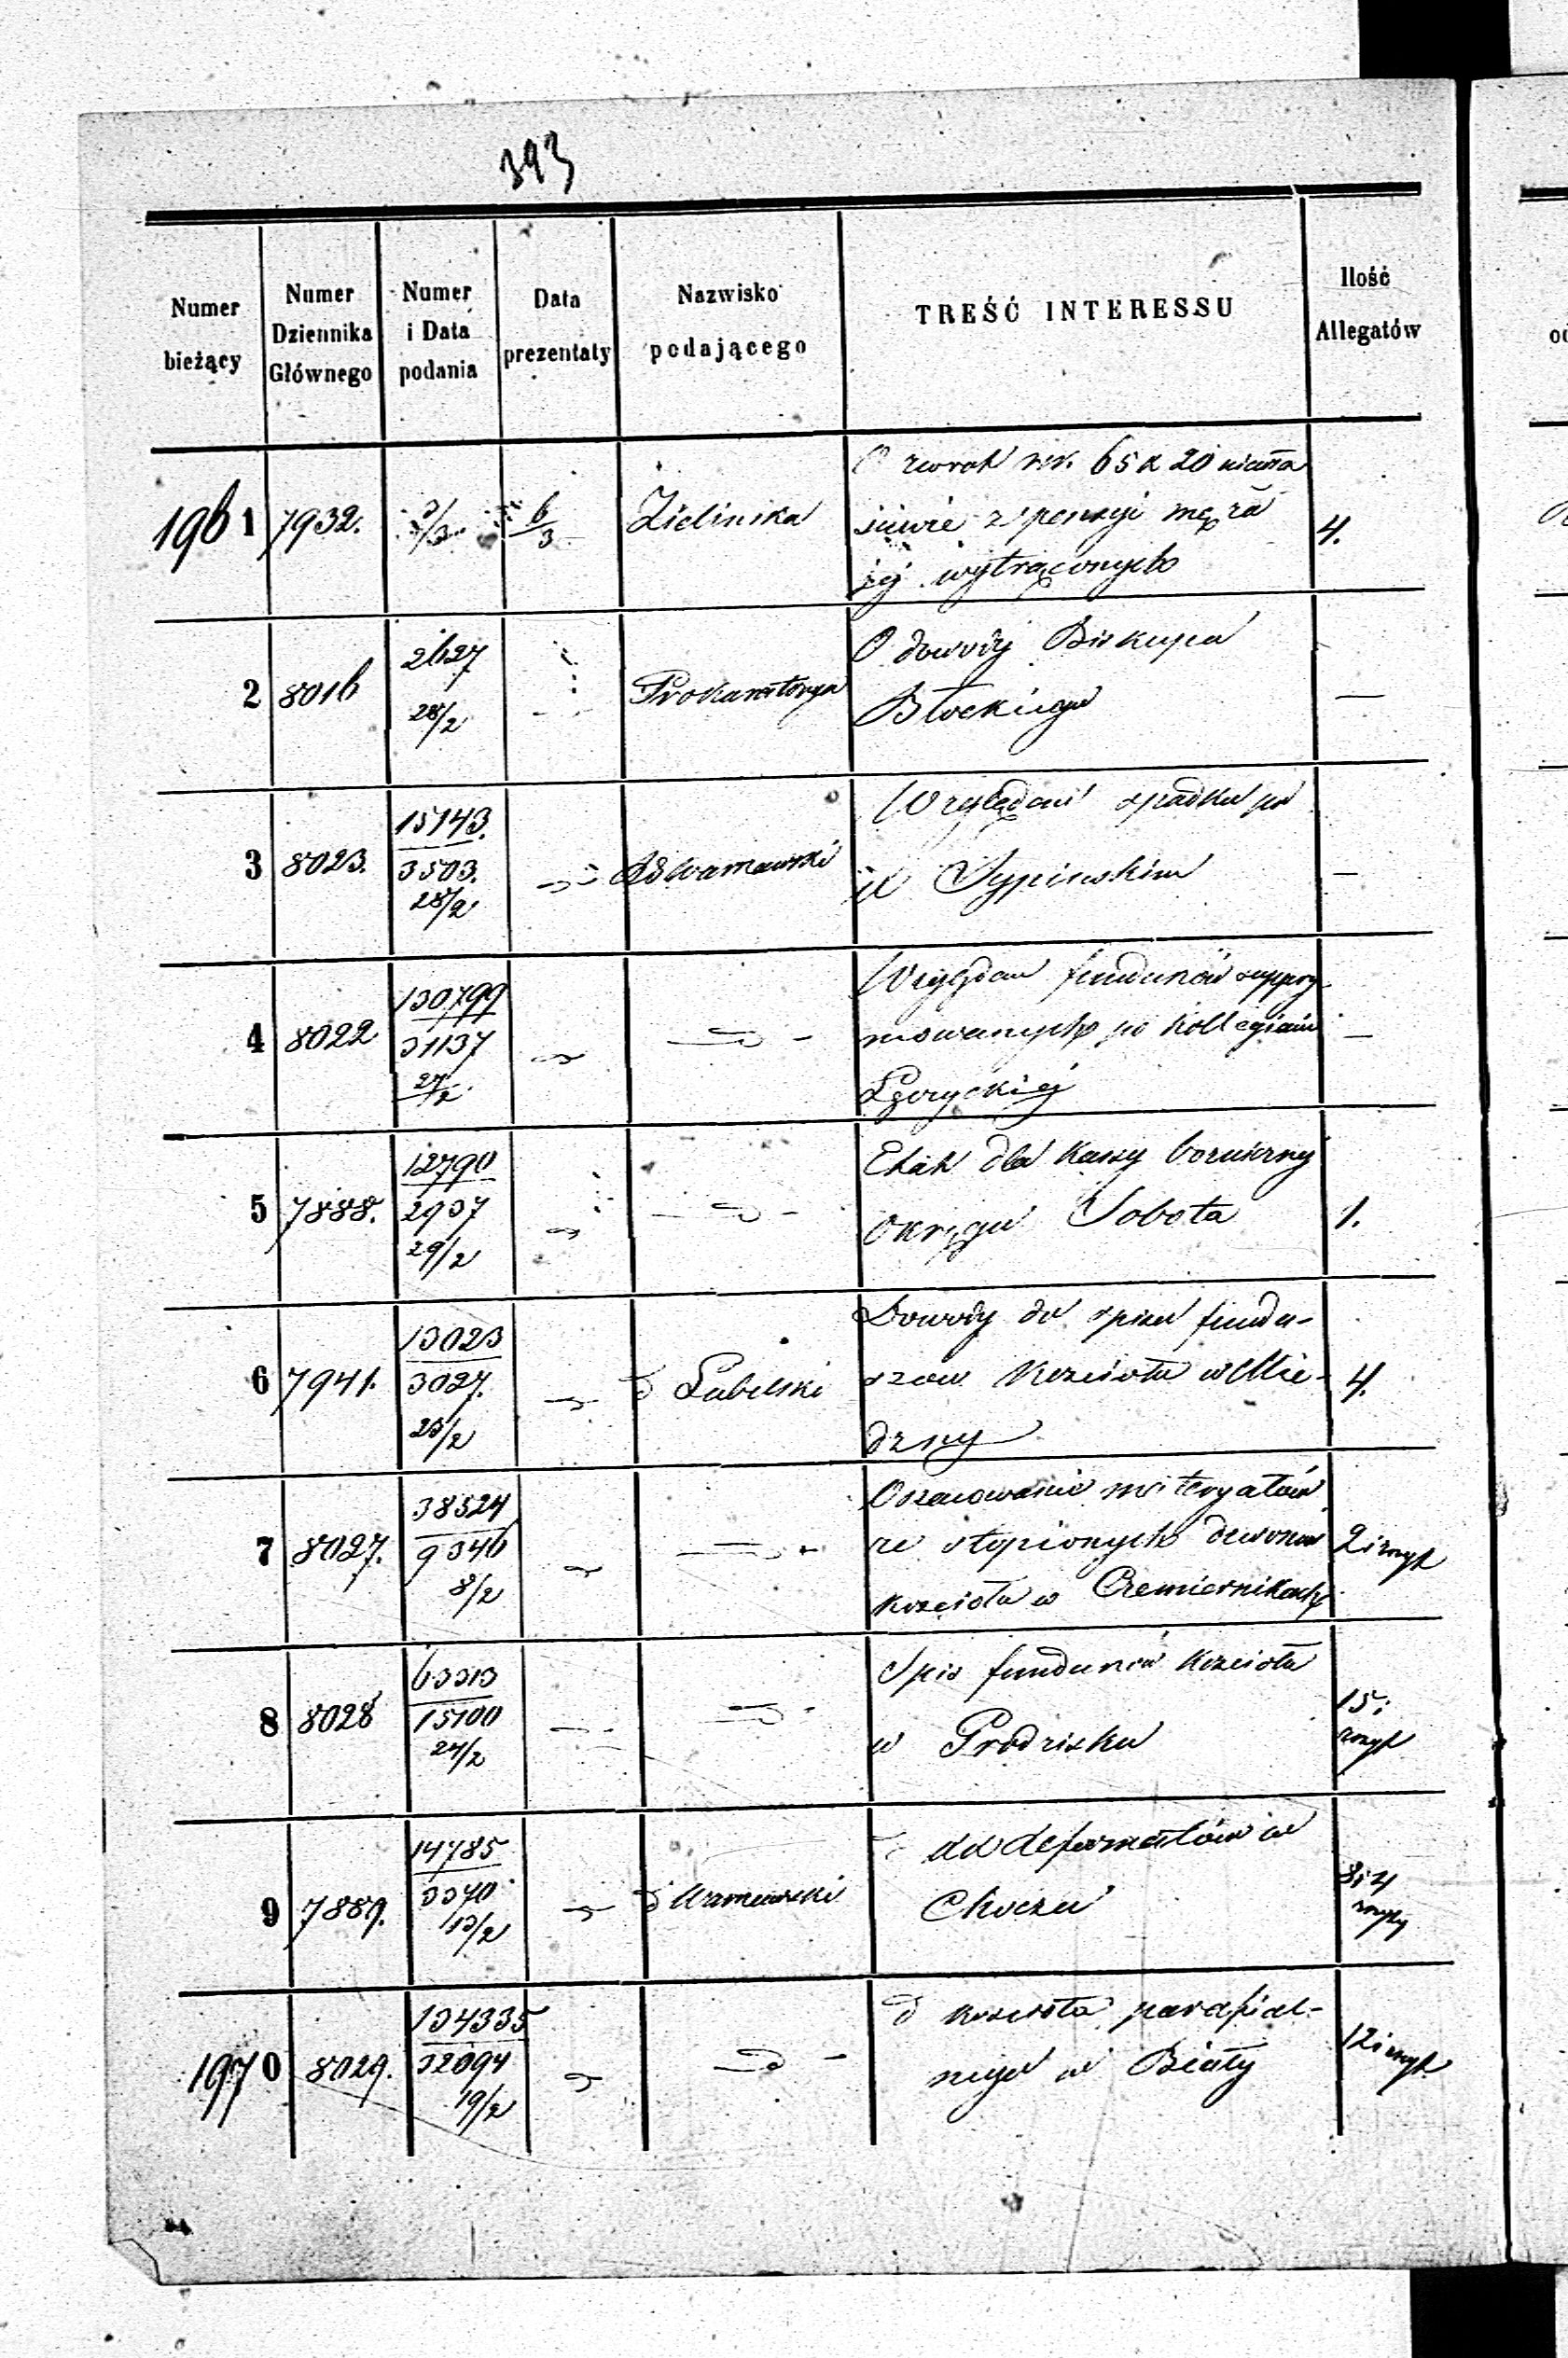 393
Numer bieżący
Numer Dziennika Głównego
Numer i Data podania
Data prezentaty
Nazwisko podającego
TREŚĆ INTERESSU
Ilość Allegatów
1961 7932. 6/3 Zielińska
O zwrot rsr. 65 k 20
z pensyi męża
jej wytrąconych
4.
2 8016 2627 28/2 Prokuratorya
O dowody Biskupa
—
3 8023. 15143. 3503. 28/2 Warszawski
Względem spadku po
—
4 8022 130799 31137 27/2
Względem funduszów suppry-
mowanych po Kollegiacie
Łęczyckiej
—
5 7888. 12790 2937 29/2
Etat dla Kassy
Okręgu Sobota
1.
6 7941. 13023 3027. 23/2 Lubelski
Dowody do spisu fundu-
szów Kościoła w Mie-
dzny
4.
7 8027. 38524 9346 8/2
Oszacowanie materyałów
ze stopionych dzwonów
Kościoła w Czemiernikach
2 i
8 8028 63313 15100 24/2
Spis funduszów Kościoła
w Grodzisku
15 i
9 7889. 14785 3370 13/2 Warszawski
dd Reformatów w
Choczu
8 i 4
1970 8029. 134335 32094 19/2
d Kościoła parafial-
nego w Biały
12 i